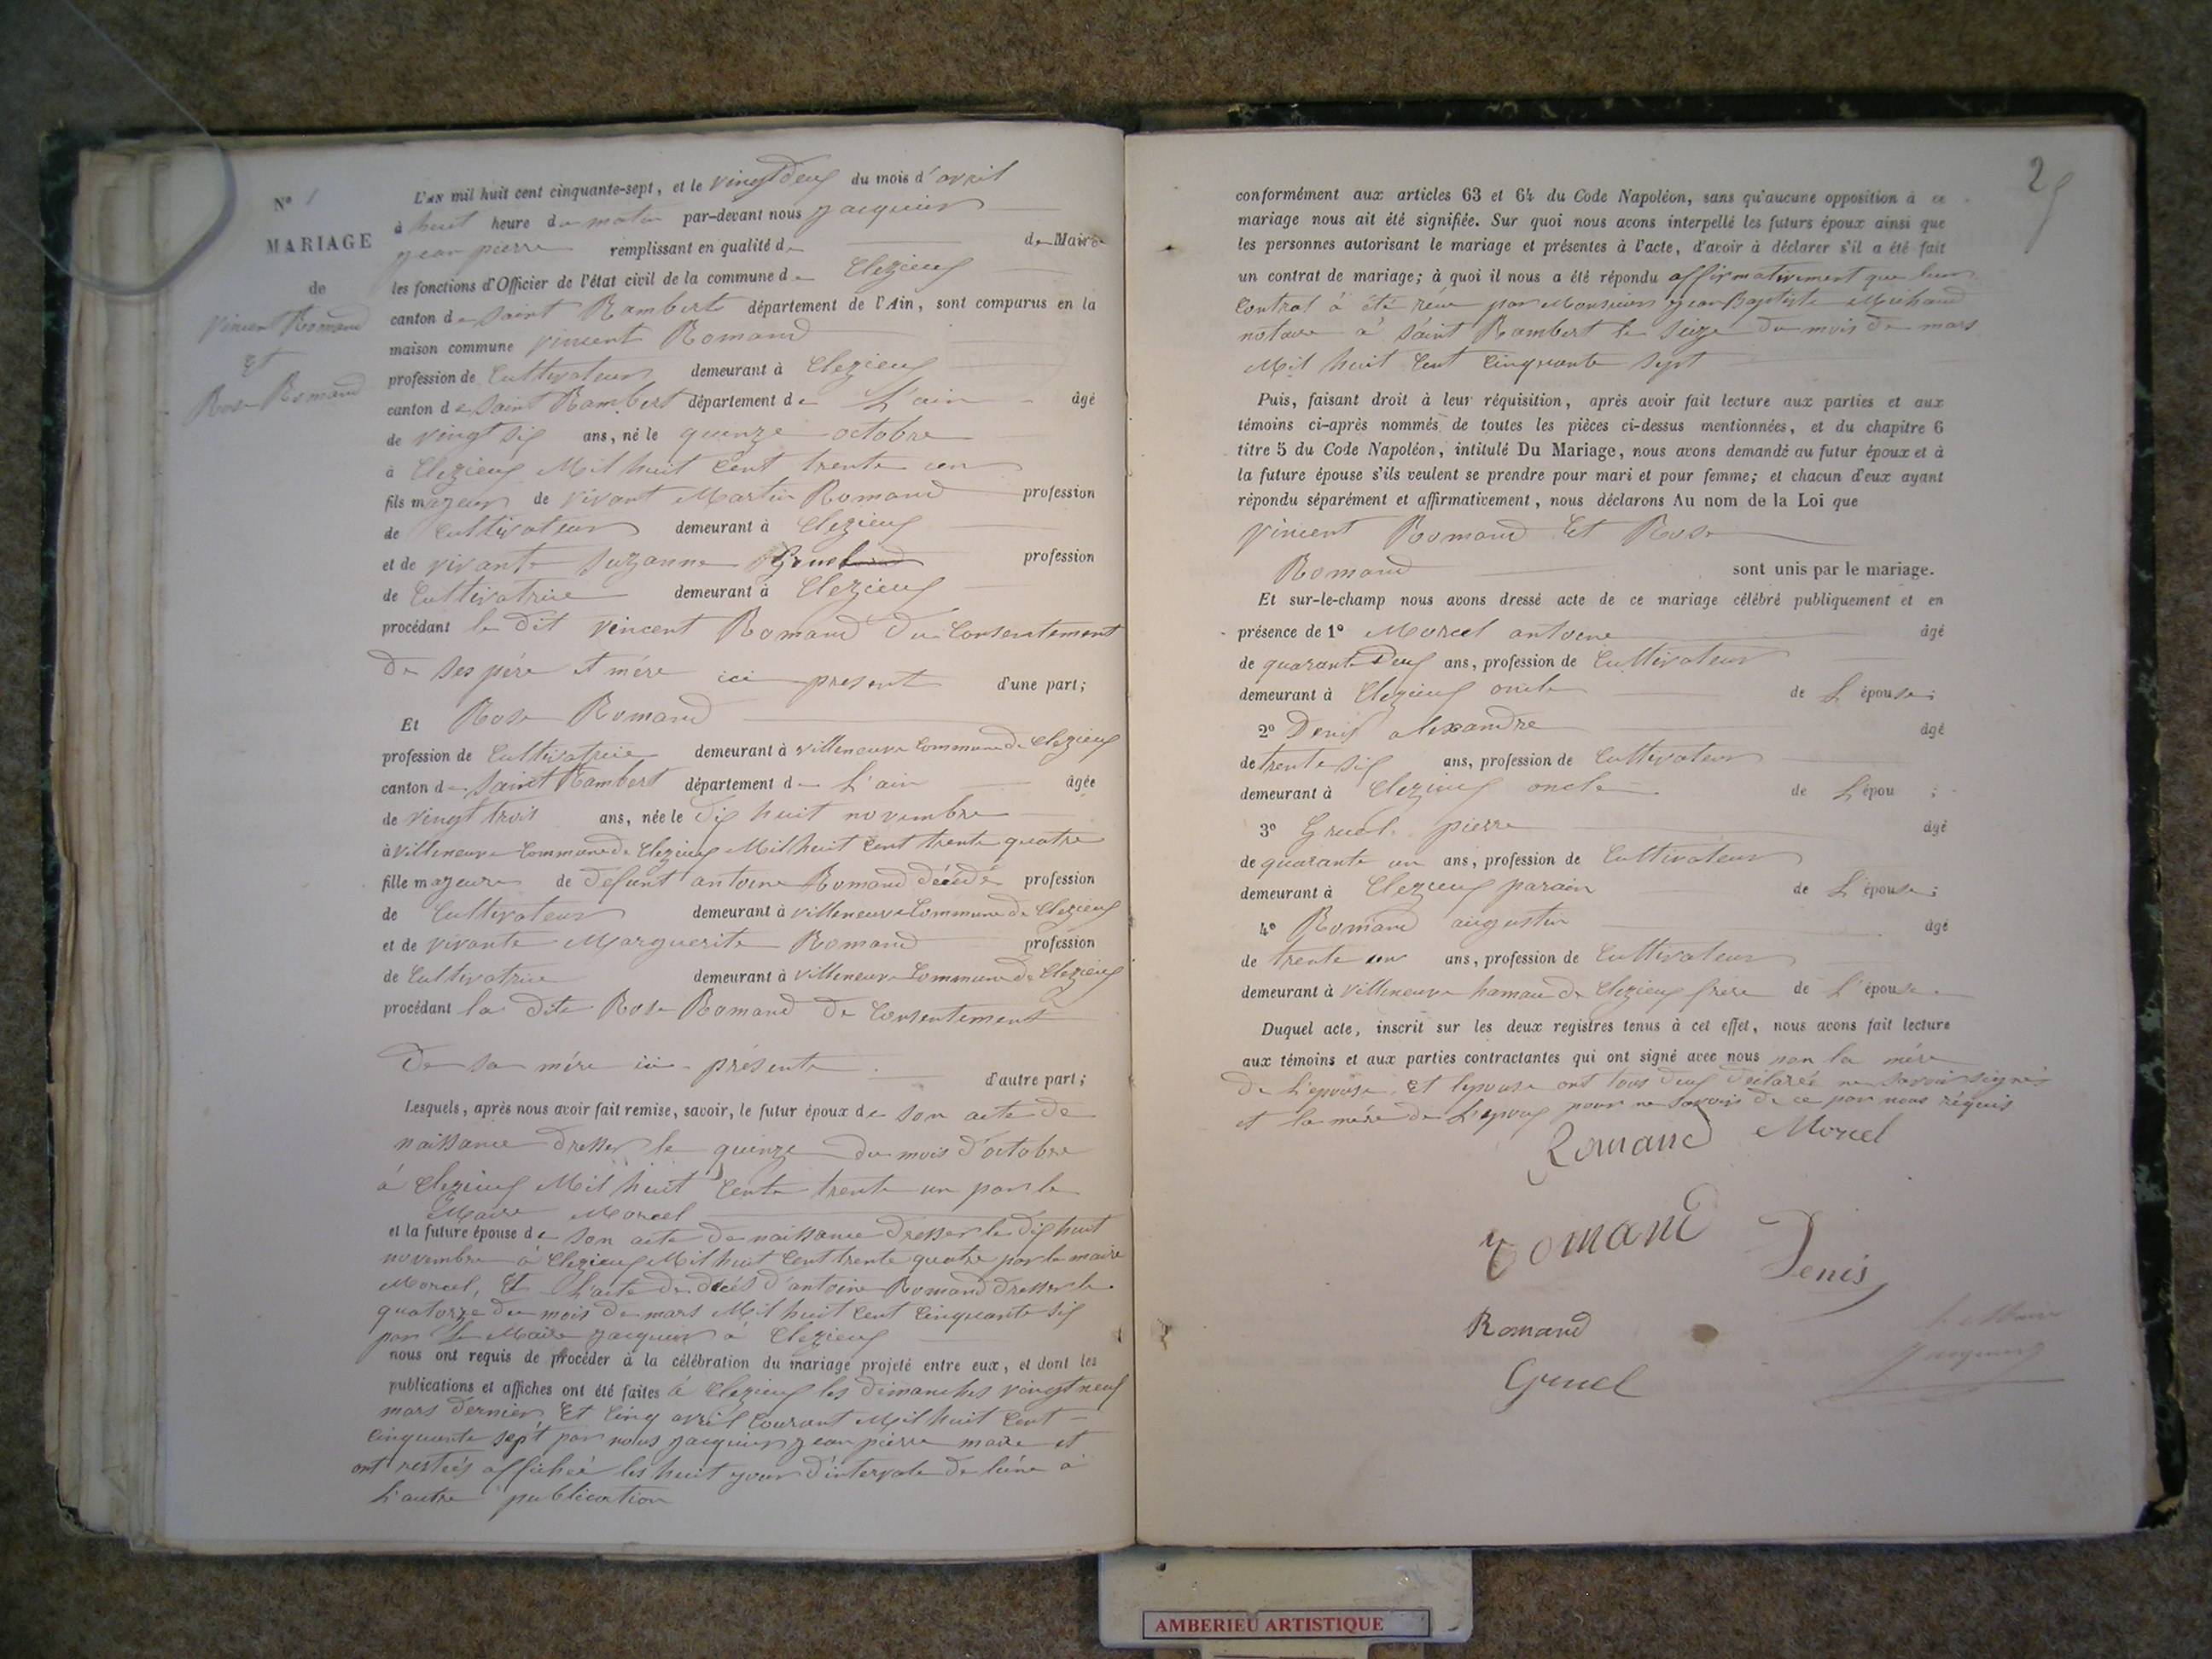 N° 1
MARIAGE
de
Vincent Romand
Et
Rose Romand
L'AN mil huit cent cinquante-sept, et le vingt deux du mois d'avril
à huit heure du matin par-devant nous Jacquier
jean pierre remplissant en qualité de de Maire
les fonctions d'Officier de l'état civil de la commune de Clezieux
canton de Saint Rambert département de l'Ain, sont comparus en la
maison commune vincent Romand
profession de Cultivateur demeurant à Clezieux
canton de Saint Rambert département de L'ain âgé
de vingt six ans, né le quinze octobre
à Clezieux Mil huit Cent trente un
fils majeur de vivant Martin Romand profession
de Cultivateur demeurant à Clezieux
et de vivante Suzanne Gruel profession
de Cultivatrice demeurant à Clezieux
procédant le dit Vincent Romand du Consentement
De ses père et mère ici present d'une part;
Et Rose Romand
profession de Cultivatrice demeurant à villeneuve Commune de Clezieux
canton de Saint Rambert département de L'ain âgée
de vingt trois ans, née le dix huit novembre
à villeneuve Commune de Clezieux Mil huit Cent trente quatre
fille majeure de defunt antoine Romand décédé profession
de Cultivateur demeurant à villeneuve Commune de Clezieux
et de vivante Marguerite Romand profession
de Cultivatrice demeurant à villeneuve Commune de Clezieux
procédant la dite Rose Romand de Consentement
De sa mère ici présente d'autre part;
Lesquels, après nous avoir fait remise, savoir, le futur époux de son acte de
naissance dresser le quinze du mois d'octobre
à Clezieux Mil huit Cente trente un par le
Maire Morcel
et la future épouse de son acte de naissance dresser le dix huit
novembre à Clezieux Mil huit Cent trente quatre par le maire
Morcel, Et L'acte de décés d'antoine Romand dresser le
quatorze du mois de mars Mil huit Cent Cinquante six
par Le Maire jacquier à Clezieux
nous ont requis de procéder à la célébration du mariage projeté entre eux, et dont les
publications et affiches ont été faites à Clezieux les dimanches vingt neuf
mars dernier Et Cinq avril Courant Mil huit Cent
Cinquante sept par nous jacquier jean pierre maire et
ont restés affiché les huit jour d'intervale de lúne à
L'autre publication
29
conformément aux articles 63 et 64 du Code Napoléon, sans qu'aucune opposition à ce
mariage nous ait été signifiée. Sur quoi nous avons interpellé les futurs époux ainsi que
les personnes autorisant le mariage et présentes à l'acte, d'avoir à déclarer s'il a été fait
un contrat de mariage; à quoi il nous a été répondu affirmativement que leur
Contrat à été reçu par Monsieur jean Baptiste Michaud
notaire à Saint Rambert le seize du mois de mars
Mil huit Cent Cinquante sept
Puis, faisant droit à leur réquisition, après avoir fait lecture aux parties et aux
témoins ci-après nommés de toutes les pièces ci-dessus mentionnées, et du chapitre 6
titre 5 du Code Napoléon, intitulé Du Mariage, nous avons demandé au futur époux et à
la future épouse s'ils veulent se prendre pour mari et pour femme; et chacun d'eux ayant
répondu séparément et affirmativement, nous déclarons Au nom de la Loi que
Vincent Romand Et Rose
Romand sont unis par le mariage.
Et sur-le-champ nous avons dressé acte de ce mariage célébré publiquement et en
présence de 1° Morcel antoine âgé
de quarante Deux ans, profession de Cultivateur
demeurant à Clezieux oncle de L'épouse;
2° Denis alexandre âgé
de trente six ans, profession de Cultivateur
demeurant à Clezieux oncle de L'épou ;
3° Gruel pierre âgé
de quarante un ans, profession de Cultivateur
demeurant à Clezieux parain de L'épouse;
4° Romand augustin âgé
de trente un ans, profession de Cultivateur
demeurant à villeneuve hamau de Clezieux frère de L'épouse.
Duquel acte, inscrit sur les deux registres tenus à cet effet, nous avons fait lecture
aux témoins et aux parties contractantes qui ont signé avec nous non la mère
De L'epouse. Et lepouse ont tous deux déclarée ne savoir signés
et la mère de L'epoux pour ne savoir de ce par nous réquis
Romand Morcel
romand
Denis
Romand
Le Maire
Jacquier
Gruel
AMBERIEU ARTISTIQUE